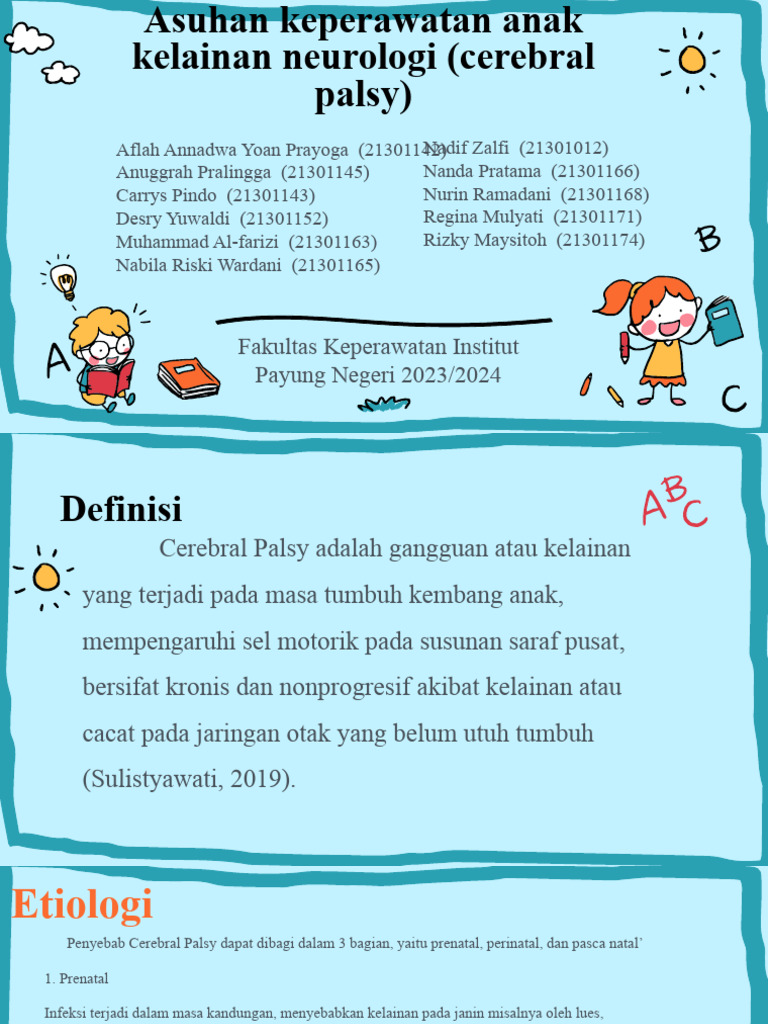 Asuhan keperawatan anak
kelainan neurologi (cerebral
palsy)
Aflah Annadwa Yoan Prayoga (21301142)
Anuggrah Pralingga (21301145)
Carrys Pindo (21301143)
Desry Yuwaldi (21301152)
Muhammad Al-farizi (21301163)
Nabila Riski Wardani (21301165)
Nadif Zalfi (21301012)
Nanda Pratama (21301166)
Nurin Ramadani (21301168)
Regina Mulyati (21301171)
Rizky Maysitoh (21301174)
B
A
Fakultas Keperawatan Institut
Payung Negeri 2023/2024
C
Definisi
A B C
Cerebral Palsy adalah gangguan atau kelainan
yang terjadi pada masa tumbuh kembang anak,
mempengaruhi sel motorik pada susunan saraf pusat,
bersifat kronis dan nonprogresif akibat kelainan atau
cacat pada jaringan otak yang belum utuh tumbuh
(Sulistyawati, 2019).
Etiologi
Penyebab Cerebral Palsy dapat dibagi dalam 3 bagian, yaitu prenatal, perinatal, dan pasca natal’
1. Prenatal
Infeksi terjadi dalam masa kandungan, menyebabkan kelainan pada janin misalnya oleh lues,